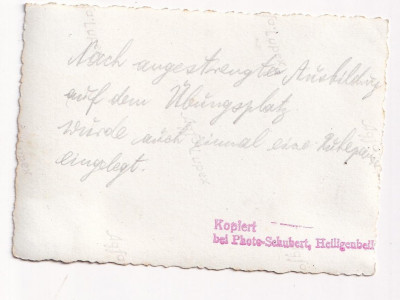 Nach angestrengter Ausbildung
auf dem Übungsplatz
wurde auch einmal eine Ruhepause
eingelegt.
Kopiert
bei Photo-Schubert, Heiligenbeil